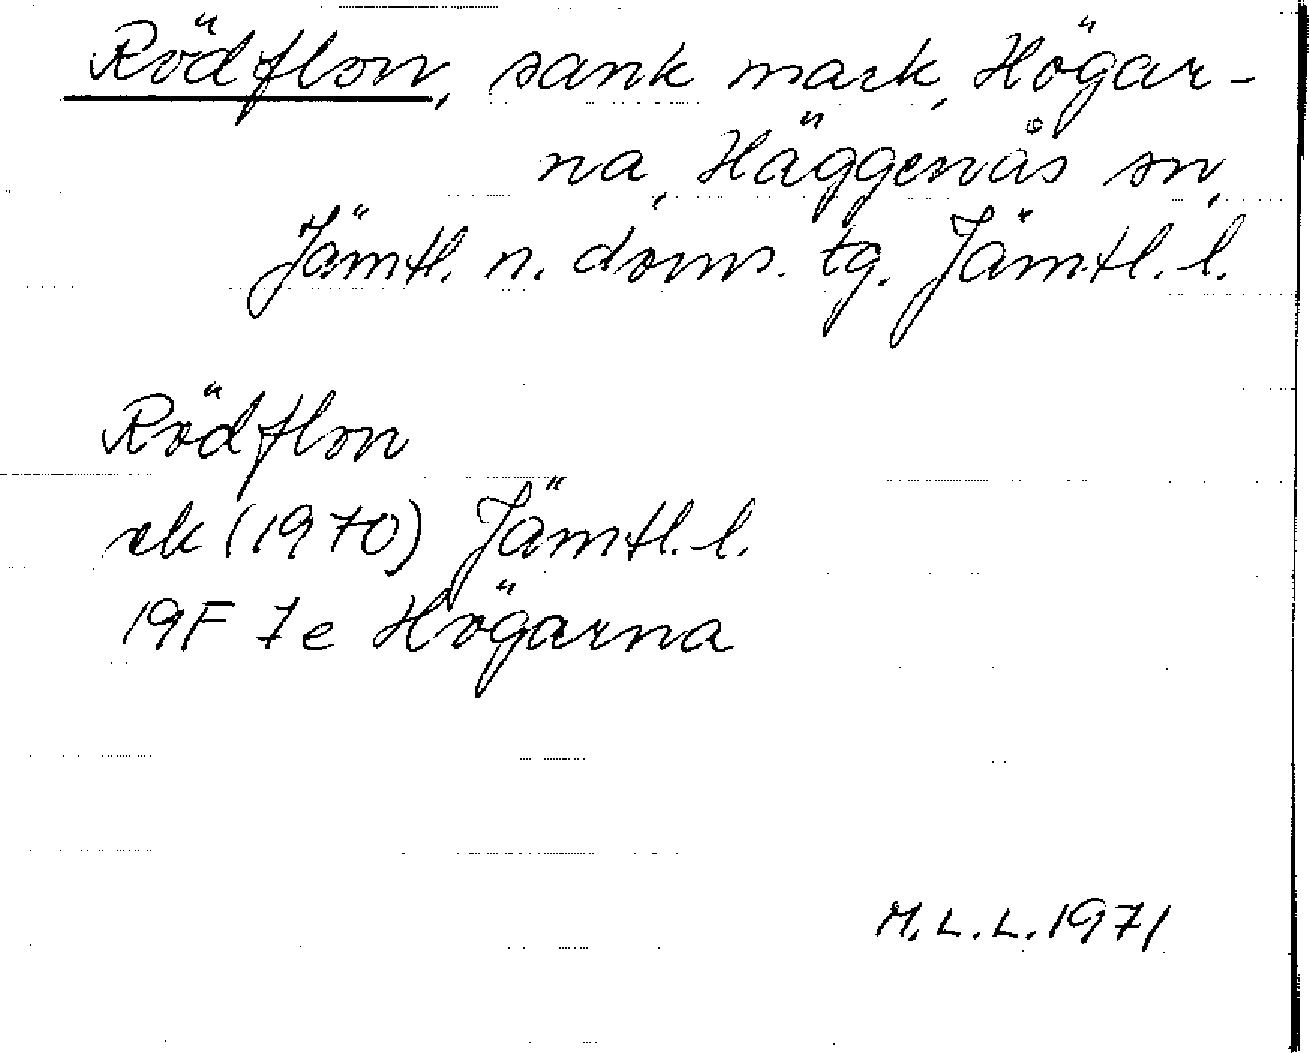 Rödflon, sank mark, Högar-
na, Häggenås sn,
Jämtl. n. doms. tg. Jämtl. l.
Rödflon
ek (1970) Jämtl. l.
19F 7e Högarna
M. L. L. 1971